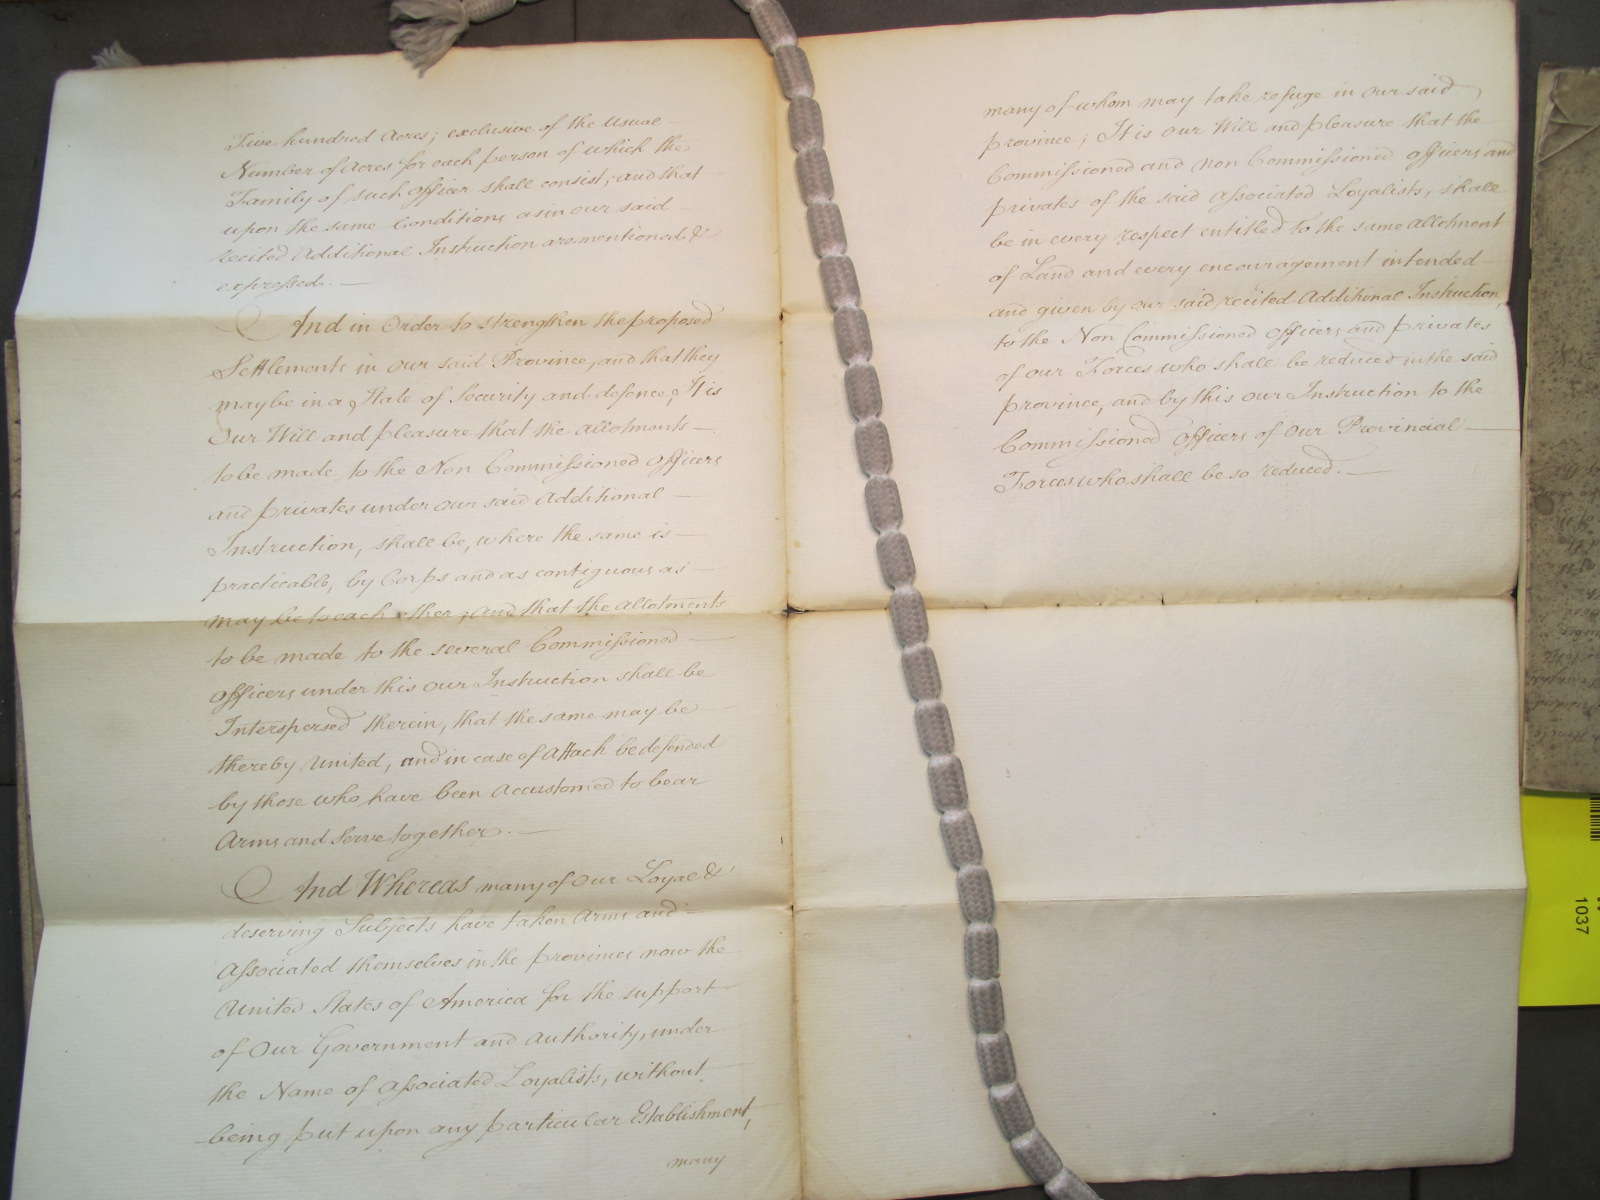 Five hundred Acres; exclusive of the usual
Number of Acres for each person of which the
Family of such officer shall consist; and that
upon the same Conditions as in our said
recited Additional Instruction are mentioned &
expressed. —
And in Order to strengthen the proposed
Settlements in our said Province, and that they
may be in a State of Security and defence, It is
Our Will and pleasure that the allotments —
to be made to the Non Commissioned Officers
and privates under our said Additional —
Instruction, shall be, where the same is —
practicable, by Corps and as contiguous as —
may be to each other; and that the allotments
to be made to the several Commissioned —
officers under this our Instruction shall be
Interspersed therein, that the same may be —
thereby united, and in case of Attack be defended
by those who have been Accustomed to bear
Arms and Serve together. —
And Whereas many of Our Loyal &
deserving Subjects have taken Arms and —
Associated themselves in the provinces now the
United States of America for the support
of Our Government and Authority, under
the Name of Associated Loyalists, without
being put upon any particular Establishment,
many
many of whom may take refuge in our said
province; It is Our Will and pleasure that the
Commissioned and non Commissioned officers and
privates of the said Associated Loyalists, shall
be in every respect entitled to the same allotment
of Land and every encouragement intended
and given by our said recited Additional Instruction,
to the Non Commissioned officers and privates
of our Forces who shall be reduced in the said
province, and by this our Instruction to the
Commissioned officers of Our Provincial —
Forces who shall be so reduced. —
1037